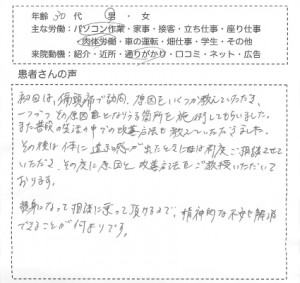 年齢 30 代 男・女
主な労働：パソコン作業・家事・接客・立ち仕事・座り仕事
・肉体労働・車の運転・畑仕事・学生・その他
来院動機：紹介・近所・通りがかり・口コミ・ネット・広告
患者さんの声
初回は、偏頭痛で訪問。原因をいくつか教えていただき、
一つずつその原因となりうる箇所を施術してもらいました。
また普段の生活の中での改善方法も教えていただきました。
その後は体に違和感が出たときには都度ご相談させて
いただき、その度に原因と改善方法をご教授いただいて
おります。
親身になって相談に乗って頂けるので、精神的な不安も解消
できることが何よりです。